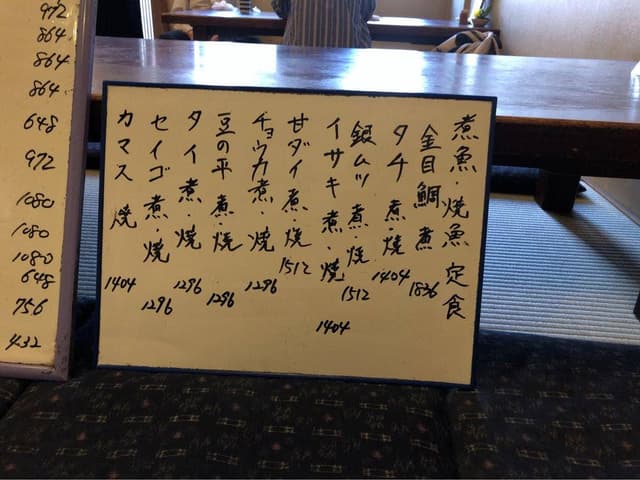 煮魚・焼魚 定食
金目鯛 煮 1836
タチ 煮・焼 1404
銀ムツ 煮・焼 1512
イサキ 煮・焼 1404
甘ダイ 煮・焼 1512
チョウカ 煮・焼 1296
豆の平 煮・焼 1296
タイ 煮・焼 1296
セイゴ 煮・焼 1296
カマス 焼 1404
972
864
864
864
648
972
1080
1080
1080
648
756
432